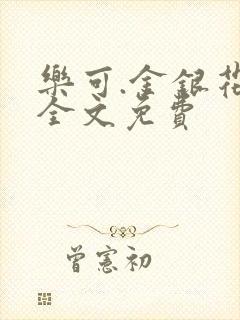 樂可.金銀花
全文免費
曾憲初